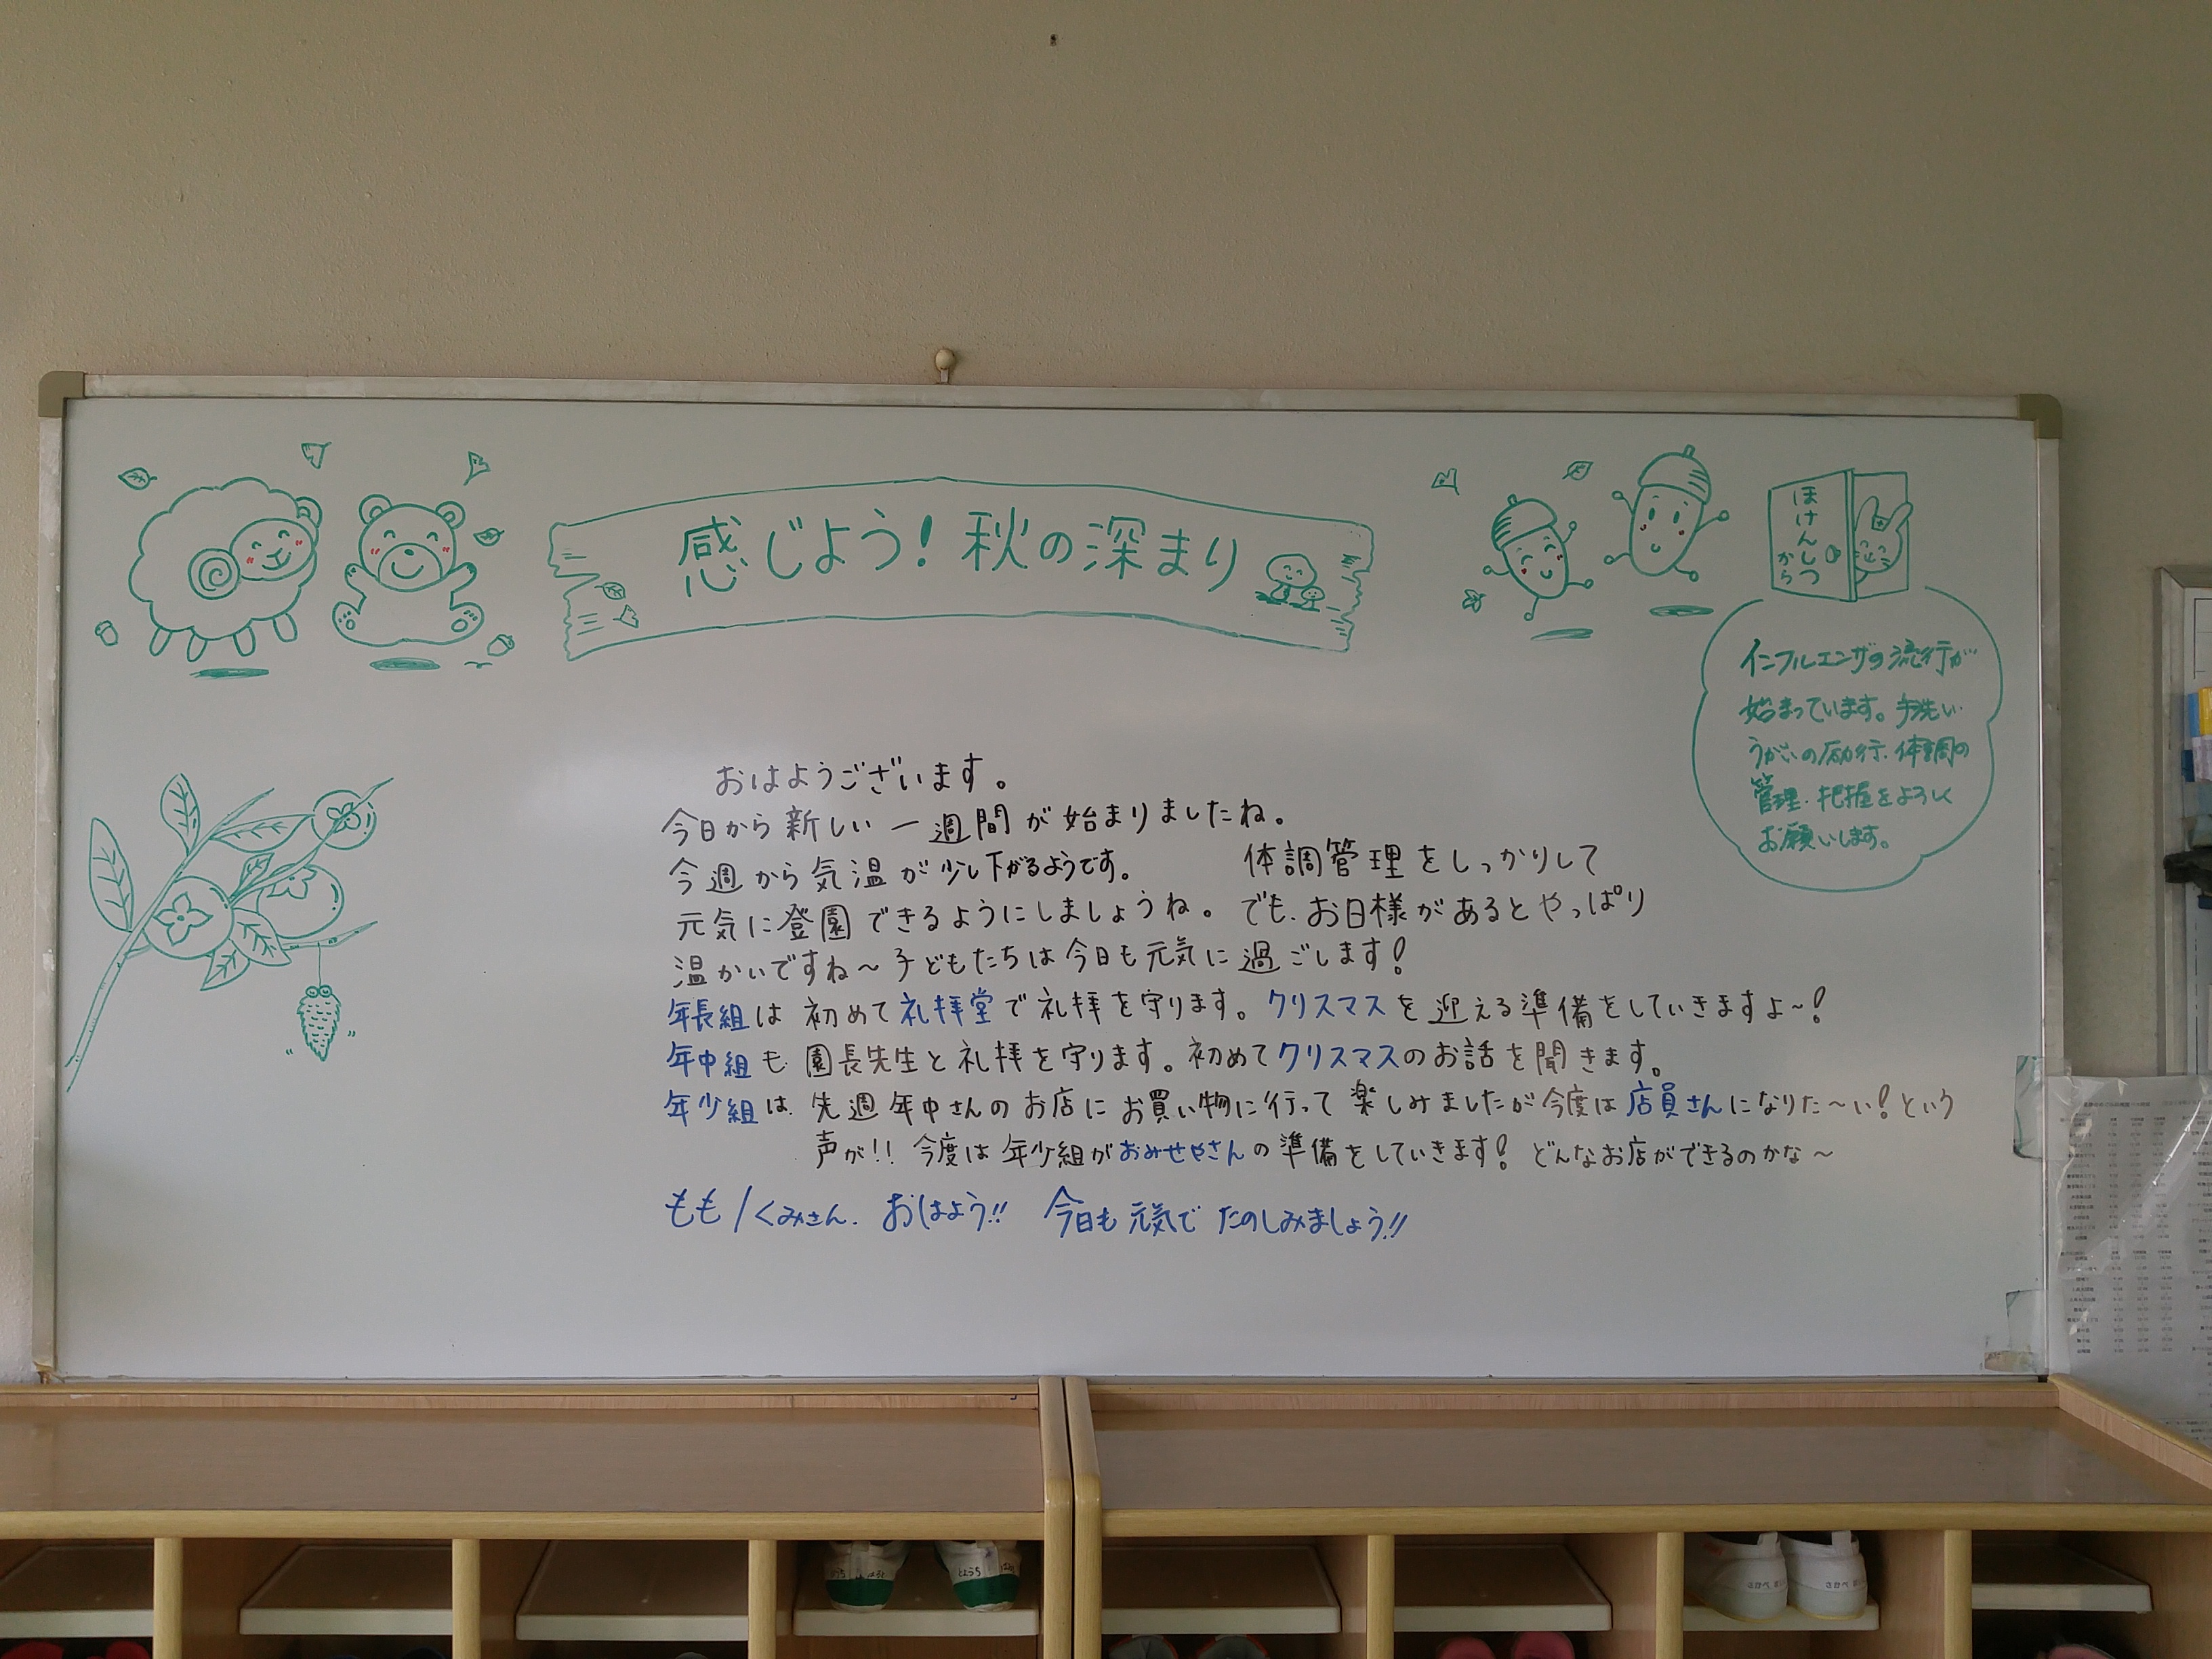 感じよう！秋の深まり
ほけんしつ
から
インフルエンザの流行が
始まっています。手洗い・
うがいの励行、体調の
管理・把握をよろしく
お願いします。
おはようございます。
今日から新しい一週間が始まりましたね。
今週から気温が少し下がるようです。 体調管理をしっかりして
元気に登園できるようにしましょうね。でも、お日様があるとやっぱり
温かいですね～子どもたちは今日も元気に過ごします！
年長組は初めて礼拝堂で礼拝を守ります。クリスマスを迎える準備をしていきますよ～！
年中組も園長先生と礼拝を守ります。初めてクリスマスのお話を聞きます。
年少組は、先週年中さんのお店にお買い物に行って楽しみましたが今度は店員さんになりた～い！という
声が!! 今度は年少組がおみせやさんの準備をしていきます！どんなお店ができるのかな～
もも1くみさん、おはよう!! 今日も元気でたのしみましょう!!
さかべ